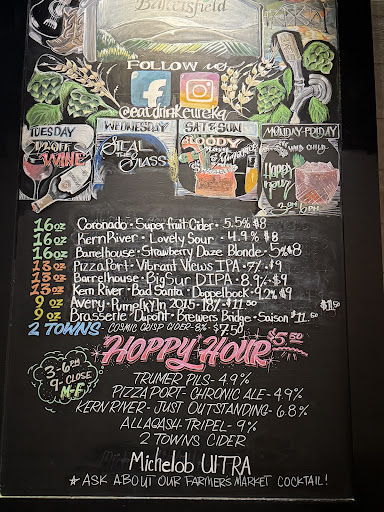 Bakersfield
FOLLOW us
@eatdrinkeureka
TUESDAY
1/2 OFF
WINE
WEDNESDAY
STEAL
THE
GLASS
SAT & SUN
BLOODY
MONDAY-FRIDAY
HAPPY
hour
3pm-6pm
16oz Coronado • Super fruit Cider • 5.5% $8
16oz Kern River • Lovely Sour • 4.9% $8
16oz Barrelhouse • Strawberry Daze Blonde • 5% $8
13oz Pizza Port • Vibrant Views IPA • 7% • $9
13oz Barrelhouse • Big Sur DIPA • 8.9% • $9
13oz Kern River • Bad Santa • Doppelbock • 9.2% $9
9 oz Avery • Pumpkyn 2015 • 18% $11.50
9 oz Brasserie Dupont • Brewers Bridge • Saison $11.50
2 TOWNS • COSMIC CRISP CIDER • 8% • $7.50
HOPPY HOUR $5.50
3-6PM
9-CLOSE
M-F
TRUMER PILS - 4.9%
PIZZA PORT - CHRONIC ALE - 4.9%
KERN RIVER - JUST OUTSTANDING - 6.8%
ALLAGASH - TRIPEL - 9%
2 TOWNS CIDER
Michelob ULTRA
☆ ASK ABOUT OUR FARMERS MARKET COCKTAIL!